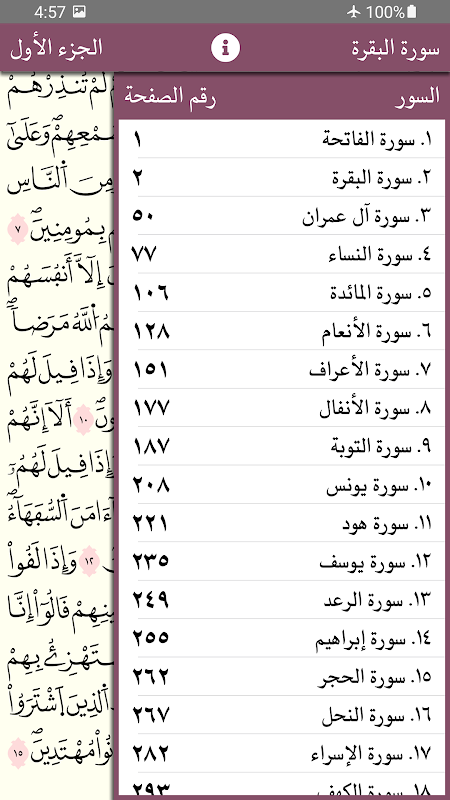 4:57 100%
سورة البقرة الجزء الأول
السور رقم الصفحة
١. سورة الفاتحة ١
٢. سورة البقرة ٢
٣. سورة آل عمران ٥٠
٤. سورة النساء ٧٧
٥. سورة المائدة ١٠٦
٦. سورة الأنعام ١٢٨
٧. سورة الأعراف ١٥١
٨. سورة الأنفال ١٧٧
٩. سورة التوبة ١٨٧
١٠. سورة يونس ٢٠٨
١١. سورة هود ٢٢١
١٢. سورة يوسف ٢٣٥
١٣. سورة الرعد ٢٤٩
١٤. سورة إبراهيم ٢٥٥
١٥. سورة الحجر ٢٦٢
١٦. سورة النحل ٢٦٧
١٧. سورة الإسراء ٢٨٢
١٨. سورة الكهف ٢٩٣
لَمْ تُنذِرْهُمْ
وَعَلَىٰ
مِنَ اَ۬لنَّاسِ
بِمُومِنِينَۖ ٧
إِلَّآ أَنفُسَهُمْ
اُ۬للَّهُ مَرَضاٗۖ
وَإِذَا قِيلَ لَهُمْ
١٠ أَلَآ إِنَّهُمْ
إِذَا قِيلَ لَهُمُۥٓ
ءَامَنَ اَ۬لسُّفَهَآءُۖ
١٢ وَإِذَا لَقُواْ
قَالُوٓاْ إِنَّا
بِهِمْ
اَ۬لذِينَ اَ۪شْتَرَوُاْ
مُهْتَدِينَۖ ١٥